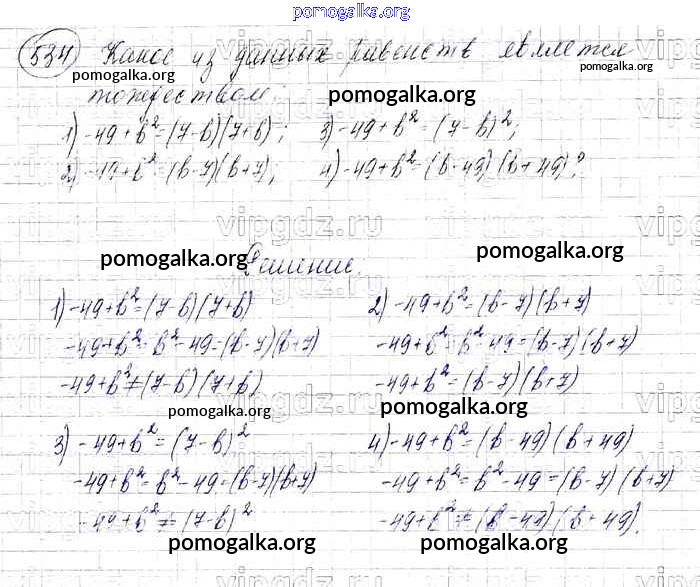 pomogalka.org
534 Какое из данных равенств является
pomogalka.org pomogalka.org
тождеством:
pomogalka.org
1) -49+b²=(7-b)(7+b); 3) -49+b²=(7-b)²;
2) -49+b²=(b-7)(b+7); 4) -49+b²=(b-49)(b+49)?
vipgdz.ru
pomogalka.org pomogalka.org
Решение.
1) -49+b²=(7-b)(7+b) 2) -49+b²=(b-7)(b+7)
-49+b²=b²-49=(b-7)(b+7) -49+b²=b²-49=(b-7)(b+7)
-49+b²≠(7-b)(7+b) -49+b²=(b-7)(b+7)
pomogalka.org pomogalka.org
3) -49+b²=(7-b)² 4) -49+b²=(b-49)(b+49)
-49+b²=b²-49=(b-7)(b+7) -49+b²=b²-49=(b-7)(b+7)
-49+b²≠(7-b)² -49+b²≠(b-49)(b+49).
pomogalka.org pomogalka.org